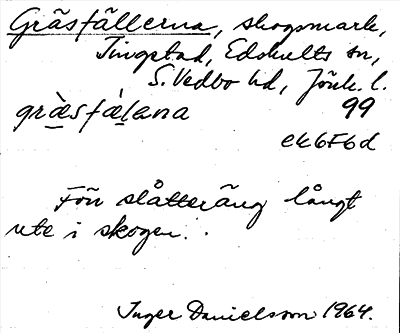 Gräsfällerna, skogsmark,
Tingstad, Edshults sn,
S. Vedbo hd, Jönk. l.
græ̀sfæ̀ḷana 99
ek6F6d
Förr slåtteräng långt
ute i skogen.
Inger Danielsson 1964.